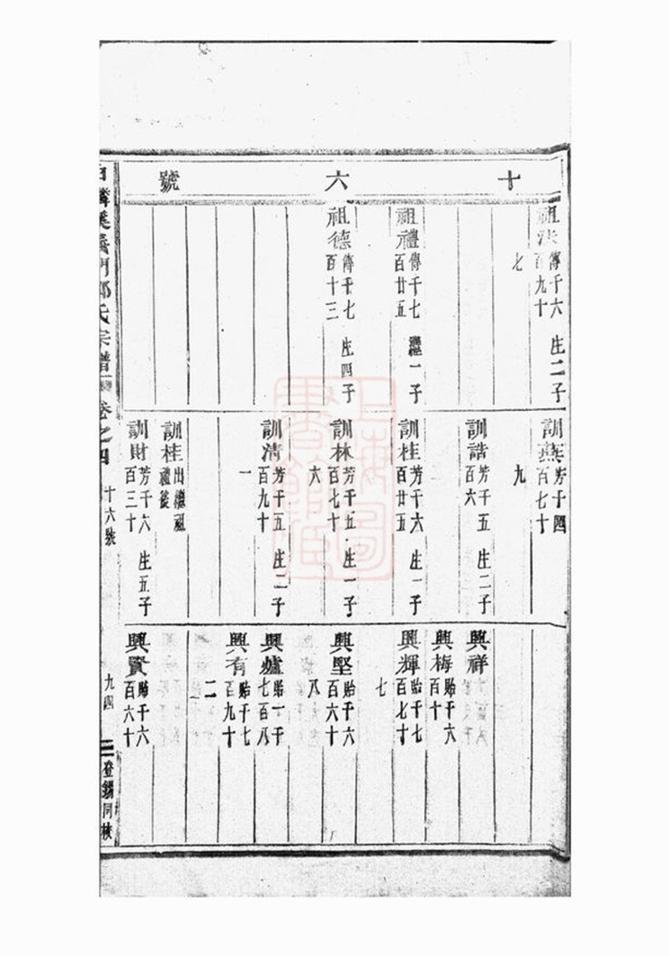 十六號
祖法傳千六百九十七 生二子
祖禮傳千七百廿五 繼一子
祖德傳千七百十三 生四子
訓燕芳千四百七十九
訓誥芳千五百六 生二子
訓桂芳千六百廿五 生一子
訓林芳千五百七十六 生一子
訓清芳千五百九十一 生二子
訓桂出繼祖禮後
訓財芳千六百三十 生五子
興祥
興梅貽千六百十
興輝貽千七百七十七
興堅貽千六百六十八
興爐貽一千七百八
興有貽千七百九十二
興賢貽千六百六十
氏宗譜 卷之四 十六號 九四 登錫同校
上海圖書館藏